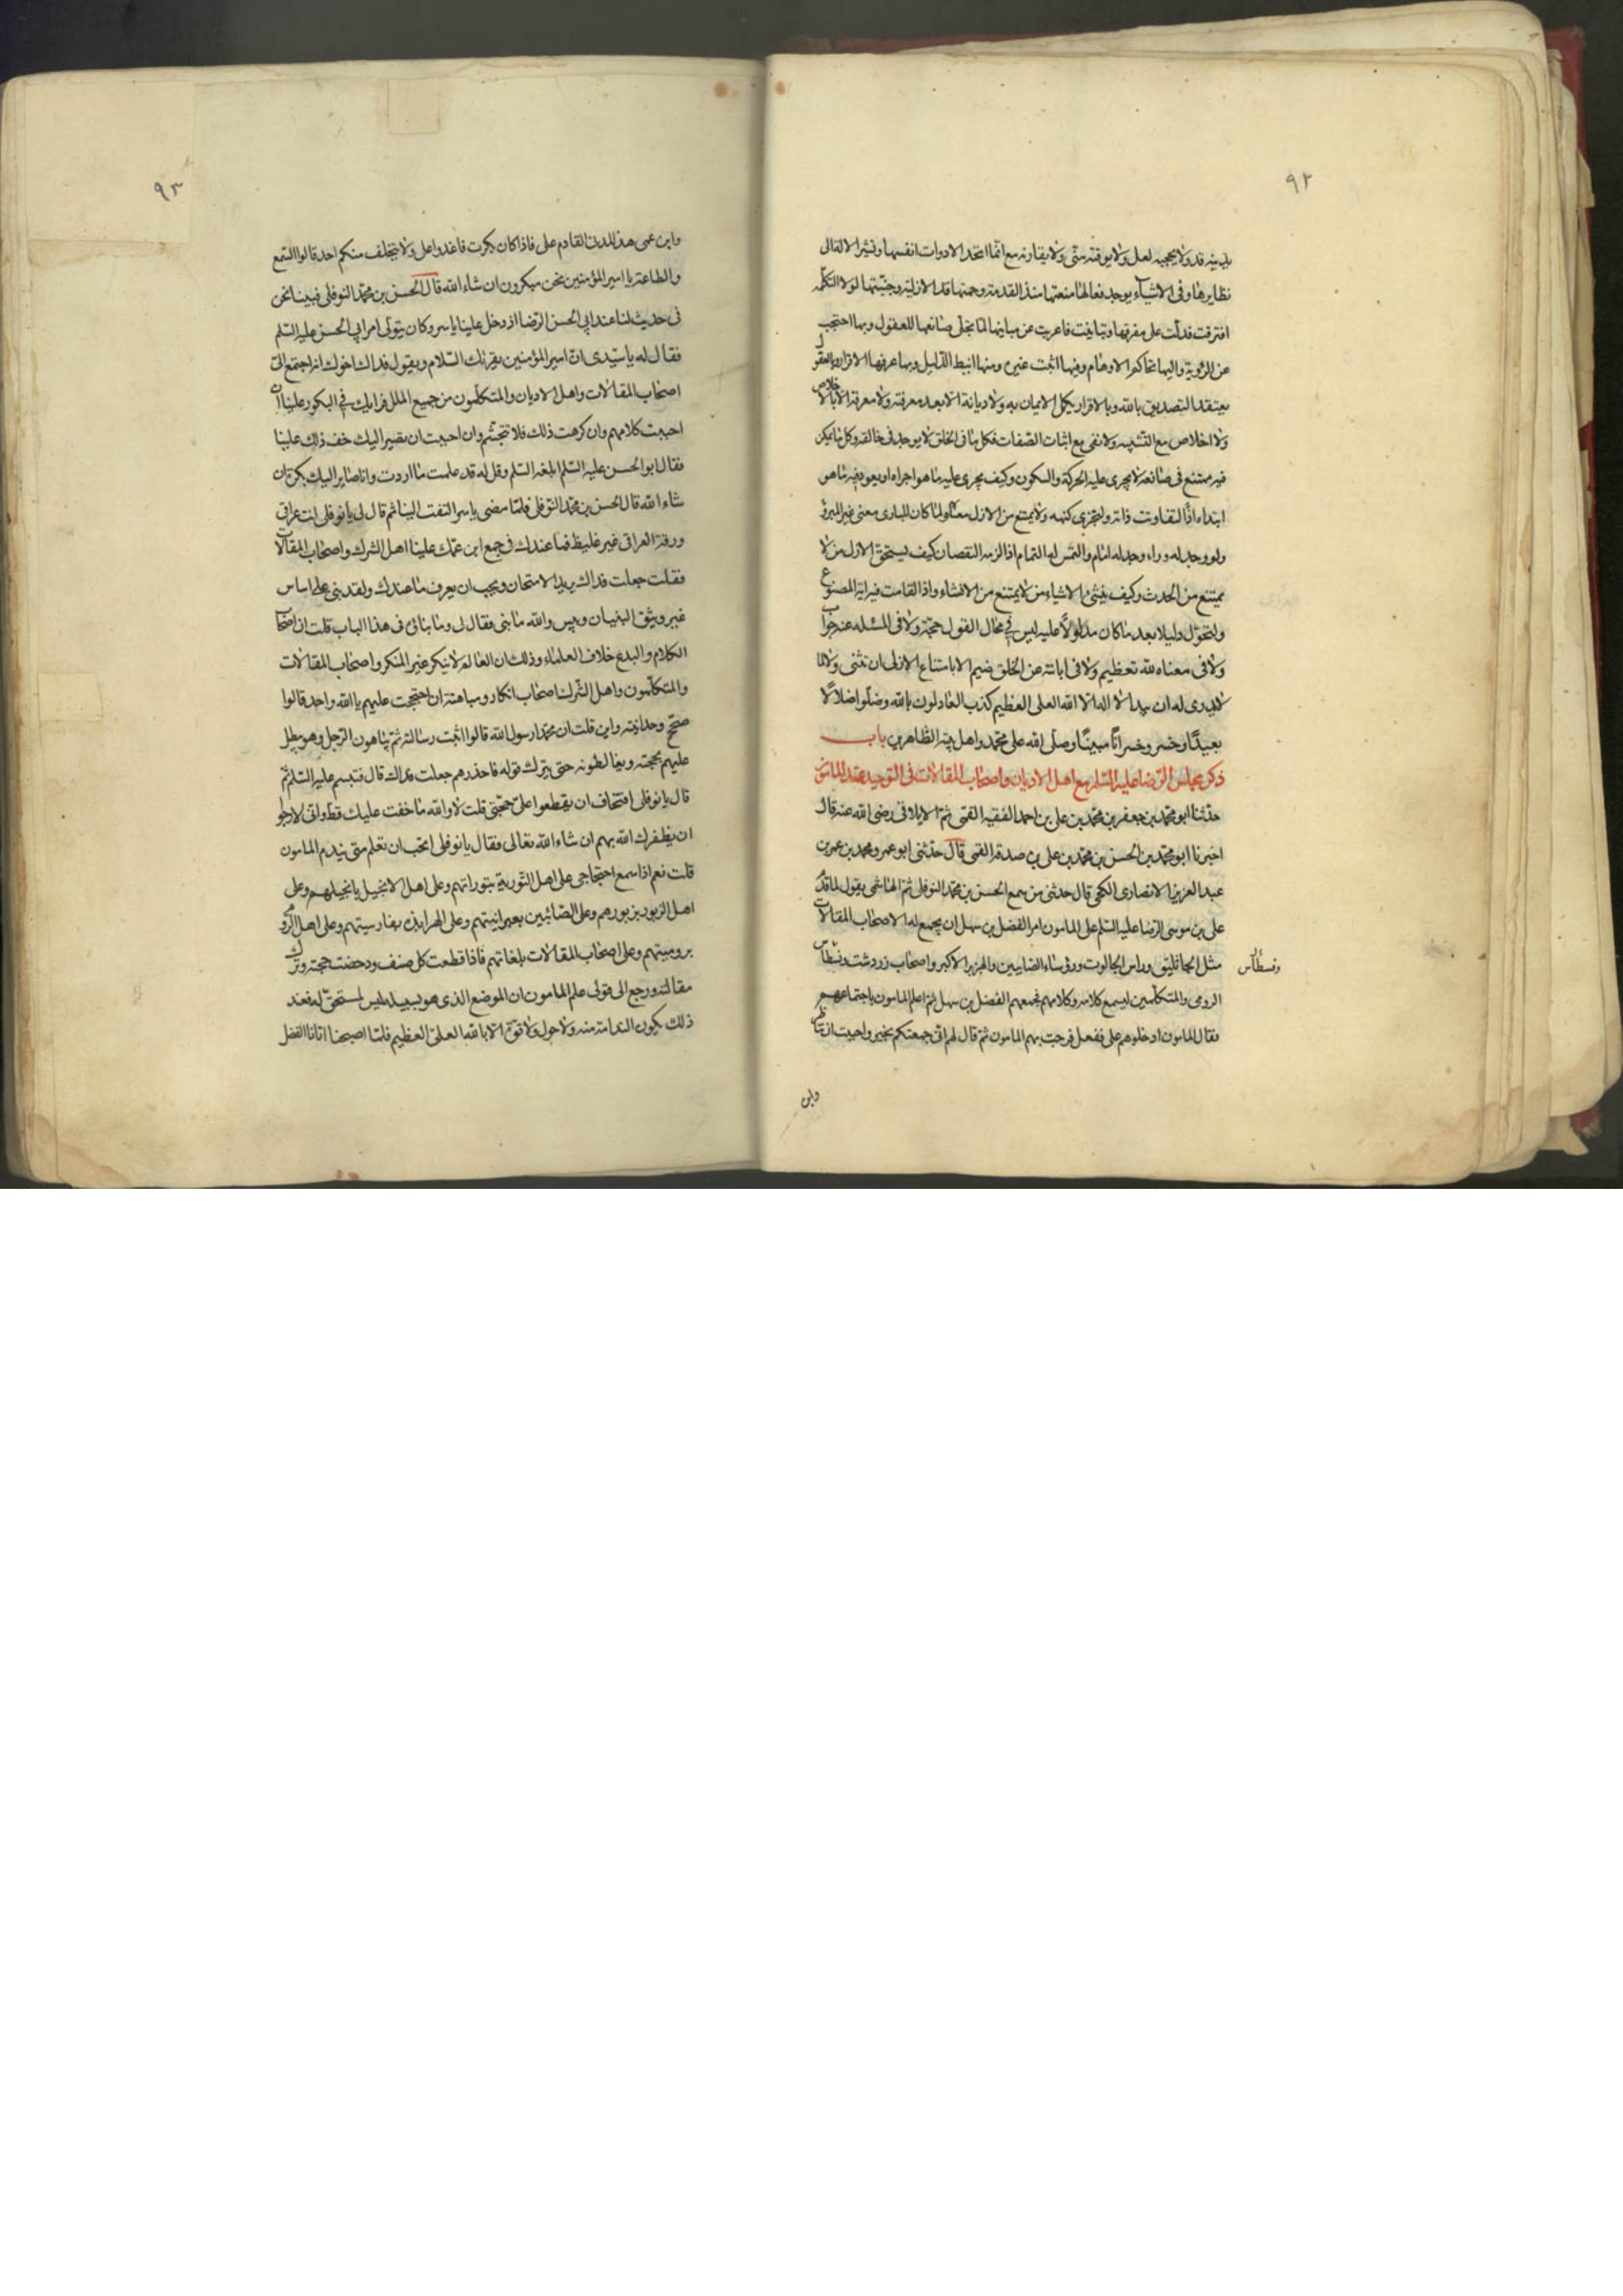 ٩٢
يدينه قد ولا يحجبه لعل ولا يوقته متى ولا يقارنه مع انما تحد الادوات انفسها وتشير الالة الى
نظايرها وفي الاشياء يوجد فعالها منعتها منذ القدمة وحمتها قد الازلية وجنبتها لولا التكملة
افترقت فدلت على مفرقها وتباينت فاعربت عن مباينها لما تجلى صانعها للعقول وبها احتجب
عن الرؤية واليها تحاكم الاوهام وفيها اثبت غيره ومنها انبط الدليل وبها عرفها الاقرار وبالعقول
يعتقد التصديق بالله وبالاقرار يكمل الايمان به ولا ديانة الا بعد معرفته ولا معرفة الا بالاخلاص
ولا اخلاص مع التشبيه ولا نفى مع اثبات الصفات فكل ما فى الخلق لا يوجد فى خالقه وكل ما يمكن
فيه ممتنع فى صانعه لا يجرى عليه الحركة والسكون وكيف يجرى عليه ما هو اجراه او يعود فيه ما هو
ابتداه اذا لتفاوتت ذاته ولتجزى كنهه ولامتنع من الازل معناه ولما كان للبارى معنى غير المبروء
ولو وجد له وراء وجد له امام والتمس له التمام اذ الزمه النقصان كيف يستحق الازل من لا
يمتنع من الحدث وكيف ينشئ الاشياء من لا يمتنع من الانشاء واذا لقامت فيه اية المصنوع
ولتحول دليلا بعد ما كان مدلولا عليه ليس فى محال القول حجة ولا فى المسئله عنه جواب
ولا فى معناه لله تعظيم ولا فى ابانته عن الخلق ضيم الا بامتناع الازلى ان يثنى ولما
لا بدى له ان يبدا لا اله الا الله العلى العظيم كذب العادلون بالله وضلوا ضلالا
بعيدا وخسروا خسرانا مبينا وصلى الله على محمد واهل بيته الطاهرين باب
ذكر مجلس الرضا عليه السلم مع اهل الاديان واصحاب المقالات فى التوحيد عند المامون
حدثنا ابو محمد بن جعفر بن محمد بن على بن احمد الفقيه القمى ثم الايلاقى رضى الله عنه قال
اخبرنا ابو محمد بن الحسن بن محمد بن على بن صدقه القمى قال حدثنى ابو عمرو محمد بن عمر بن
عبد العزيز الانصارى الكجى قال حدثنى من سمع الحسن بن محمد النوفلى ثم الهاشمى يقول لما قدم
على بن موسى الرضا عليه السلم على المامون امر الفضل بن سهل ان يجمع له الاصحاب المقالات
مثل الجاثليق وراس الجالوت ورؤساء الصابيين والهربز الاكبر واصحاب زردشت ونسطاس
ونسطاس
الرومى والمتكلمين ليسمع كلامه وكلامهم فجمعهم الفضل بن سهل ثم اعلم المامون باجتماعهم
فقال المامون ادخلوهم على ففعل فرحب بهم المامون ثم قال لهم انى جمعتكم لخير واحببت ان تناظروا
وابن
٩٣
وابن عمى هذا المدنى القادم على فاذا كان بكرت فاغدوا على ولا يتخلف منكم احد قالوا السمع
والطاعة يا امير المؤمنين نحن مبكرون ان شاء الله قال الحسن بن محمد النوفلى فبينا نحن
فى حديث لنا عند ابى الحسن الرضا اذ دخل علينا ياسر وكان يتولى امر ابى الحسن عليه السلم
فقال له يا سيدى ان امير المؤمنين يقرئك السلام ويقول فداك اخوك انه اجتمع الى
اصحاب المقالات واهل الاديان والمتكلمون من جميع الملل فرايك فى البكور علينا ان
احببت كلامهم وان كرهت ذلك فلا تتجشم وان احببت ان نصير اليك خف ذلك علينا
فقال ابو الحسن عليه السلم ابلغه السلم وقل له قد علمت ما اردت وانا صاير اليك بكرة ان
شاء الله قال الحسن بن محمد النوفلى فلما مضى ياسر التفت الينا ثم قال لى يا نوفلى انت عراقى
ورقة العراقى غير غليظ فما عندك فى جمع ابن عمك علينا اهل الشرك واصحاب المقالات
فقلت جعلت فداك يريد الامتحان ويحب ان يعرف ما عندك ولقد بنى على اساس
غير وثيق البنيان وبئس والله ما بنى فقال لى وما بنائ فى هذا الباب قلت ان اصحاب
الكلام والبدع خلاف العلماء وذلك ان العالم لا ينكر غير المنكر واصحاب المقالات
والمتكلمون واهل الشرك اصحاب انكار ومباهتة ان احتججت عليهم بالله واحد قالوا
صحح وحدانيته واين قلت ان محمدا رسول الله قالوا اثبت رسالته ثم يباهتون الرجل وهو يبطل
عليهم بحجته ويغالطونه حتى يترك قوله فاحذرهم جعلت فداك قال فتبسم عليه السلم ثم
قال يا نوفلى افتخاف ان يقطعوا على حجتى قلت لا والله ما خفت عليك قط وانى لارجو
ان يظفرك الله بهم ان شاء الله تعالى فقال يا نوفلى اتحب ان تعلم متى يندم المامون
قلت نعم اذا سمع احتجاجى على اهل التورية بتوراتهم وعلى اهل الانجيل بانجيلهم وعلى
اهل الزبور بزبورهم وعلى الصابئين بعبرانيتهم وعلى الهرابذه بفارسيتهم وعلى اهل الروم
بروميتهم وعلى اصحاب المقالات بلغاتهم فاذا قطعت كل صنف ودحضت حجته وترك
مقالته ورجع الى قولى علم المامون ان الموضع الذى هو بسبيله ليس لمستحق له فعند
ذلك يكون الندامة منه ولا حول ولا قوة الا بالله العلى العظيم فلما اصبحنا اتانا الفضل